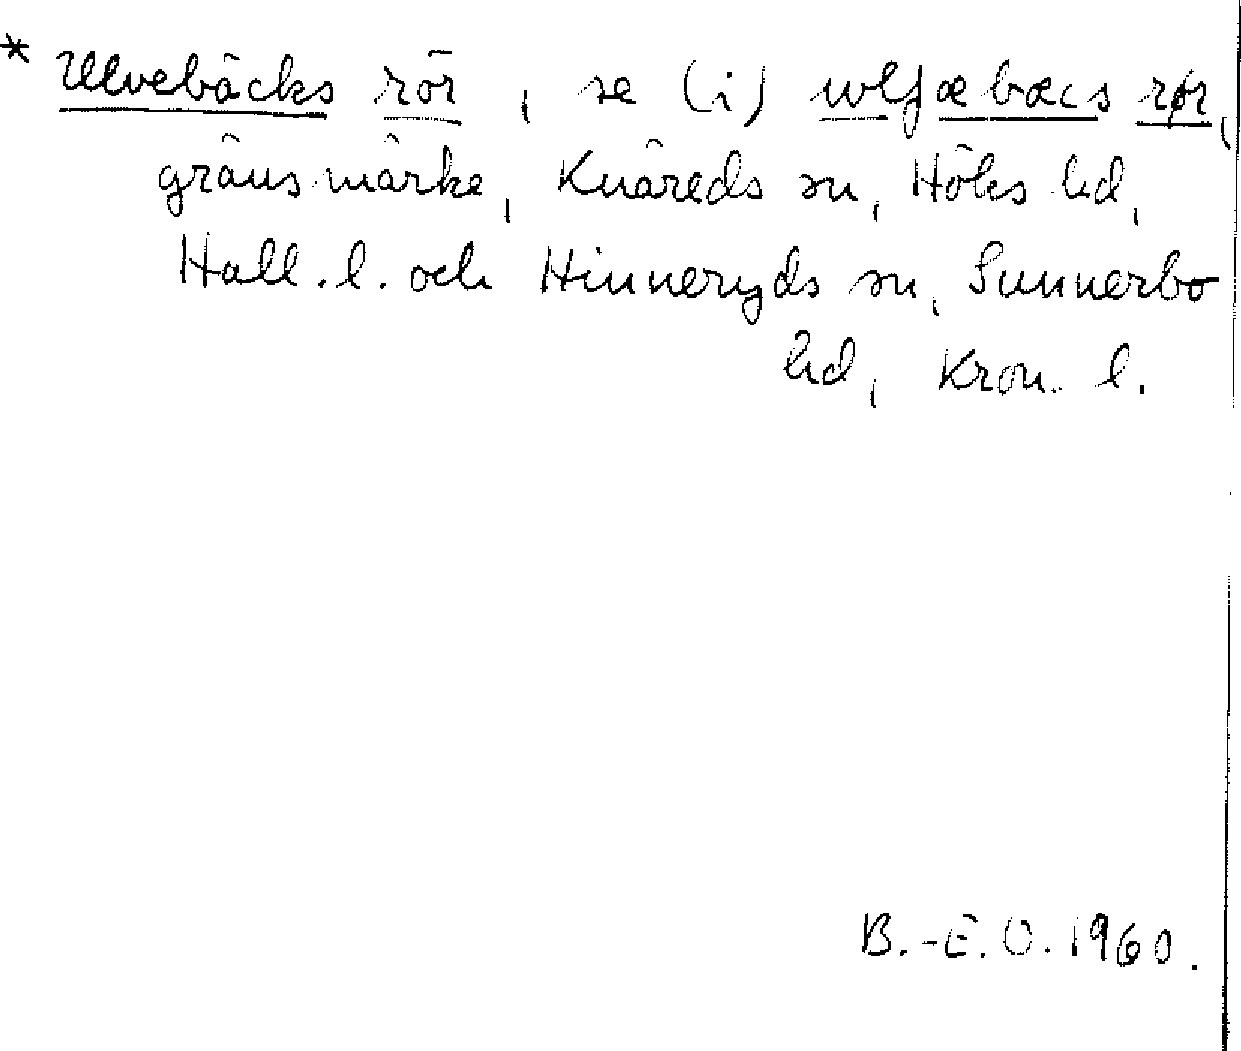 * Ulvebäcks rör, se (i) wlfæbæcs rør,
gränsmärke, Knäreds sn, Höks hd,
Hall. l. och Hinneryds sn, Sunnerbo
hd, Kron. l.
B.-E. O. 1960.